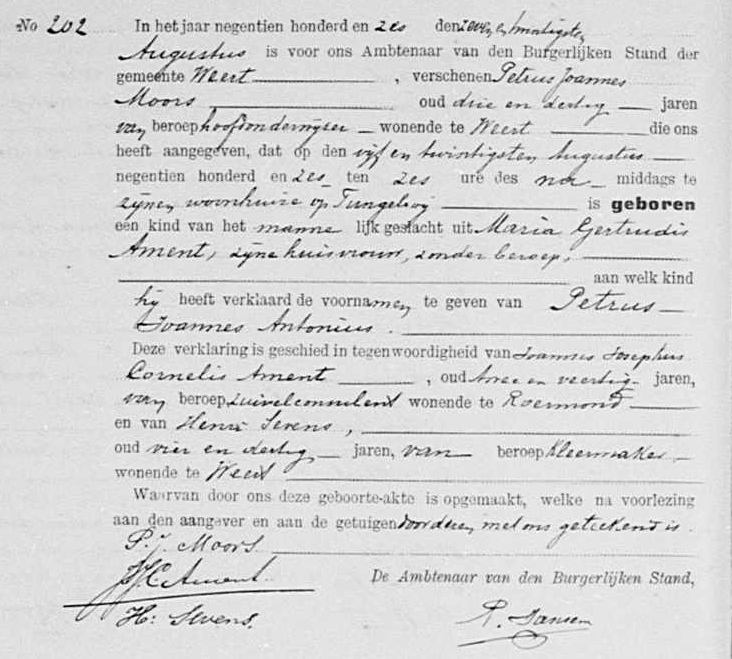 No 202 In het jaar negentien honderd en zes den zeven en twintigsten
Augustus is voor ons Ambtenaar van den Burgerlijken Stand der
gemeente Weert , verschenen Petrus Joannes
Moors oud drie en dertig jaren
van beroep hoofdonderwijzer wonende te Weert die ons
heeft aangegeven, dat op den vijf en twintigsten Augustus
negentien honderd en zes ten zes ure des na middags te
zijnen woonhuize op Tungelroij is geboren
een kind van het manne lijk geslacht uit Maria Gertrudis
Ament, zijne huisvrouw, zonder beroep,
aan welk kind
hij heeft verklaard de voornamen te geven van Petrus
Joannes Antonius.
Deze verklaring is geschied in tegenwoordigheid van Joannes Josephus
Cornelis Ament , oud twee en veertig jaren,
van beroep zuivelconsulent wonende te Roermond
en van Henri Sevens,
oud vier en dertig jaren, van beroep kleermaker
wonende te Weert
Waarvan door ons deze geboorte-akte is opgemaakt, welke na voorlezing
aan den aangever en aan de getuigen door dezen met ons geteekend is.
P. J. Moors.
JJC Ament
De Ambtenaar van den Burgerlijken Stand,
H: Sevens.